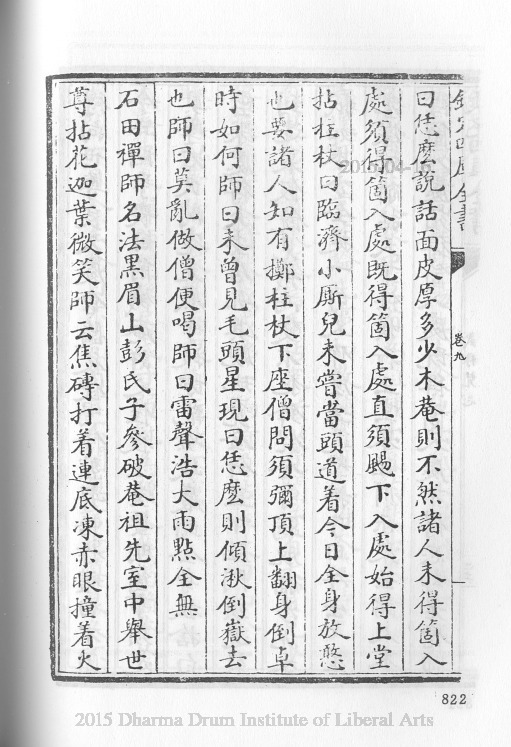 欽定四庫全書
卷九
曰恁麽說話面皮厚多少木菴則不然諸人未得箇入
處須得箇入處既得箇入處直須颺下入處始得上堂
拈柱杖曰臨濟小厮兒未嘗當頭道着今日全身放憨
也要諸人知有擲柱杖下座僧問須彌頂上翻身倒卓
時如何師曰未曾見毛頭星現曰恁麽則傾湫倒嶽去
也師曰莫亂做僧便喝師曰雷聲浩大雨點全無
石田禪師名法黒眉山彭氏子參破菴祖先室中舉世
尊拈花迦葉微笑師云焦磚打着連底凍赤眼撞着火
822
2015 Dharma Drum Institute of Liberal Arts